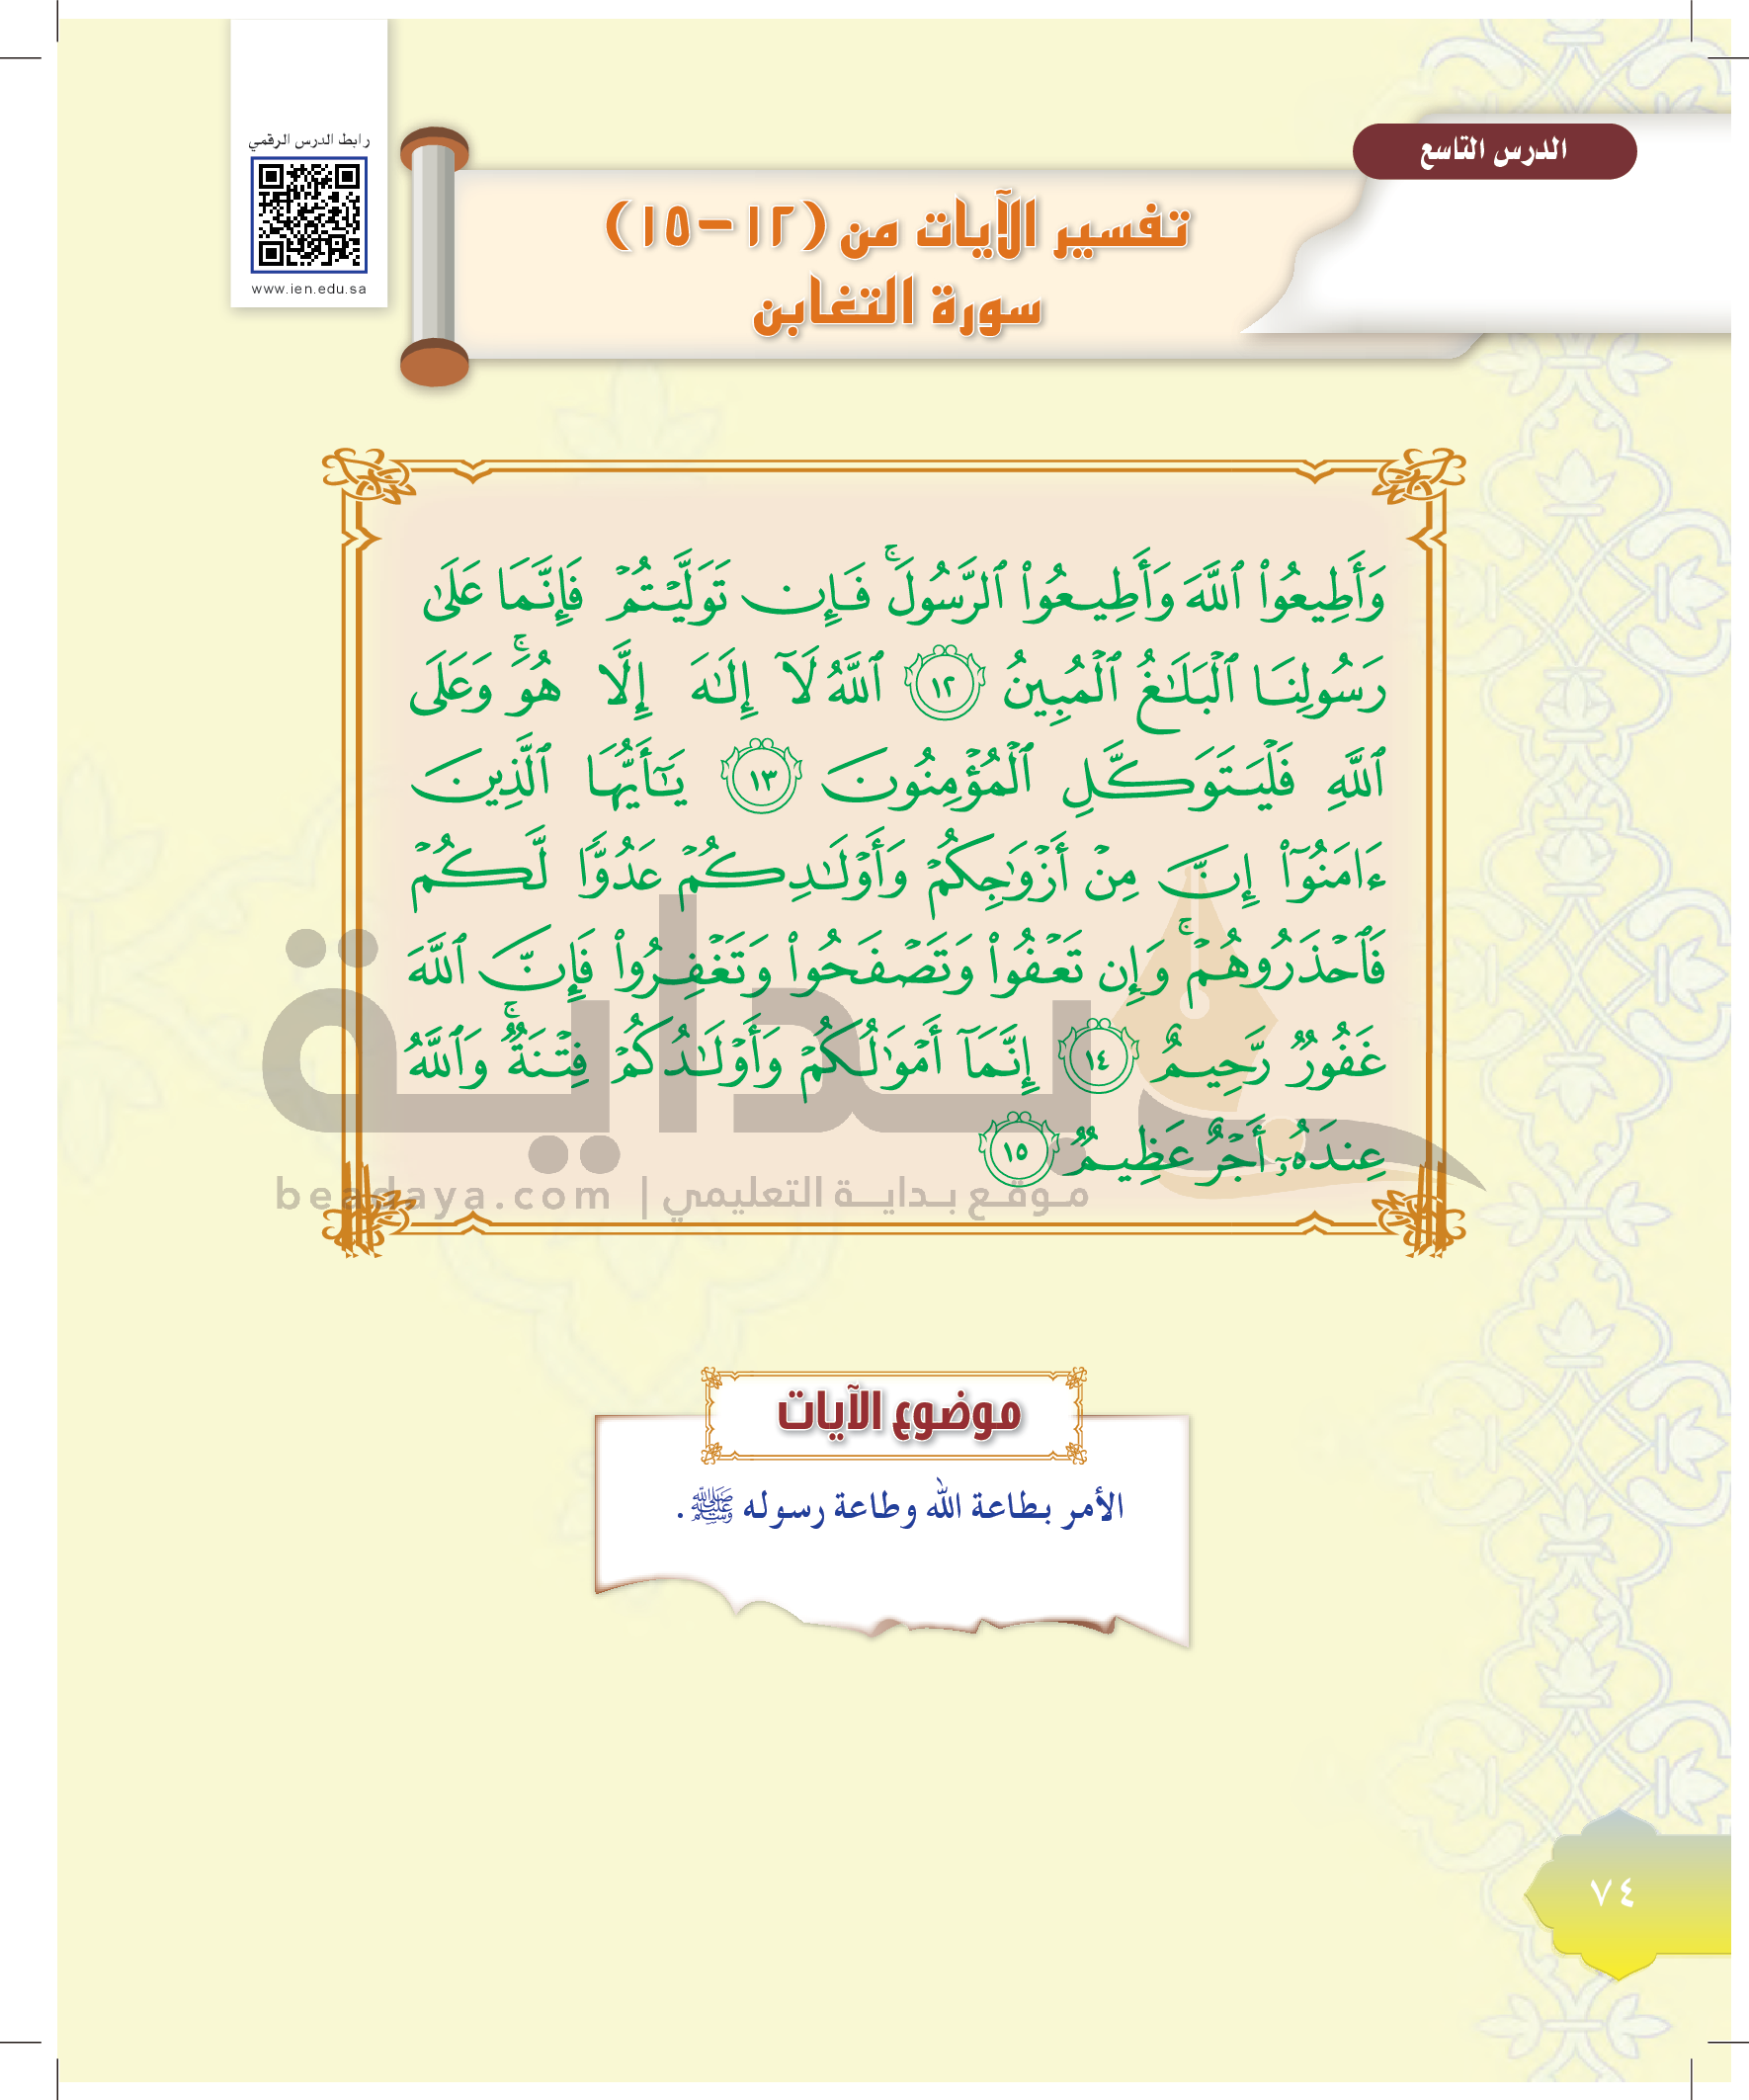 رابط الدرس الرقمي
www.ien.edu.sa
الدرس التاسع
تفسير الآيات من (١٢-١٥)
سورة التغابن
وَأَطِيعُوا۟ ٱللَّهَ وَأَطِيعُوا۟ ٱلرَّسُولَۚ فَإِن تَوَلَّيْتُمْ فَإِنَّمَا عَلَىٰ
رَسُولِنَا ٱلْبَلَٰغُ ٱلْمُبِينُ ١٢ ٱللَّهُ لَآ إِلَٰهَ إِلَّا هُوَۚ وَعَلَى
ٱللَّهِ فَلْيَتَوَكَّلِ ٱلْمُؤْمِنُونَ ١٣ يَٰٓأَيُّهَا ٱلَّذِينَ
ءَامَنُوٓا۟ إِنَّ مِنْ أَزْوَٰجِكُمْ وَأَوْلَٰدِكُمْ عَدُوًّا لَّكُمْ
فَٱحْذَرُوهُمْۚ وَإِن تَعْفُوا۟ وَتَصْفَحُوا۟ وَتَغْفِرُوا۟ فَإِنَّ ٱللَّهَ
غَفُورٌ رَّحِيمٌ ١٤ إِنَّمَآ أَمْوَٰلُكُمْ وَأَوْلَٰدُكُمْ فِتْنَةٌۚ وَٱللَّهُ
عِندَهُۥٓ أَجْرٌ عَظِيمٌ ١٥
بداية
موقع بداية التعليمي | beadaya.com
موضوع الآيات
الأمر بطاعة الله وطاعة رسوله ﷺ.
٧٤